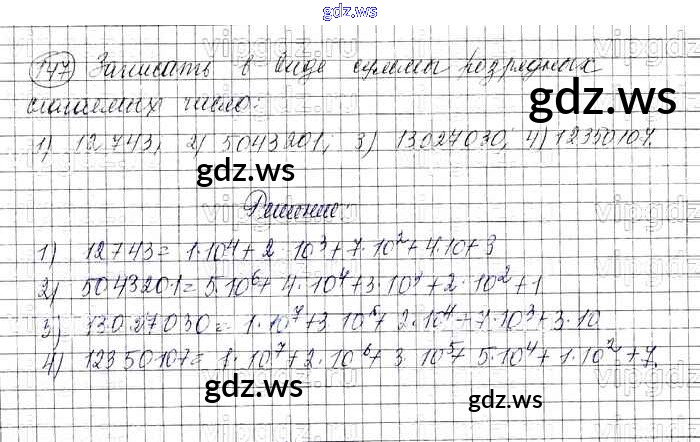 gdz.ws
147 Записать в виде суммы разрядных
слагаемых число:
gdz.ws
1) 12743, 2) 5043201, 3) 13027030, 4) 12350107.
gdz.ws
Решение:
1) 12743 = 1·10⁴ + 2·10³ + 7·10² + 4·10 + 3
2) 5043201 = 5·10⁶ + 4·10⁴ + 3·10³ + 2·10² + 1
3) 13027030 = 1·10⁷ + 3·10⁶ + 2·10⁴ + 7·10³ + 3·10
4) 12350107 = 1·10⁷ + 2·10⁶ + 3·10⁵ + 5·10⁴ + 1·10² + 7.
gdz.ws
gdz.ws